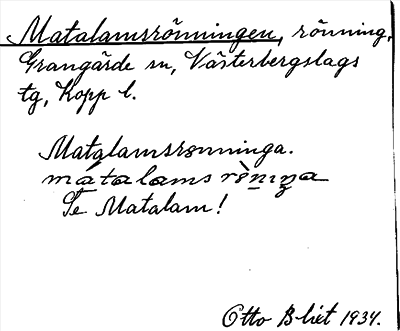 Matalamsrönningen, rönning,
Grangärde sn, Västerbergslags
tg, Kopp l.
Matalamsrønninga.
mátalams rø̀nıŋa
Se Matalam!
Otto Blixt 1934.